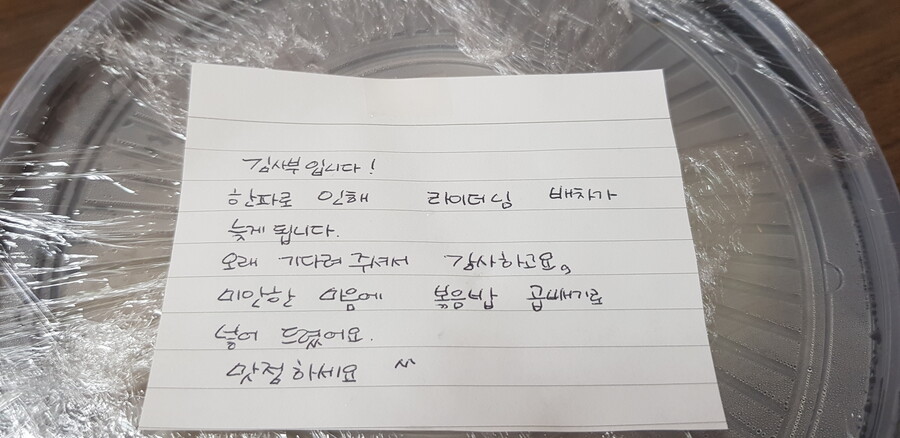 김사부입니다!
한파로 인해 라이더님 배차가
늦게 됩니다.
오래 기다려 주셔서 감사하고요.
미안한 마음에 볶음밥 곱빼기로
넣어 드렸어요.
맛점하세요 ^^